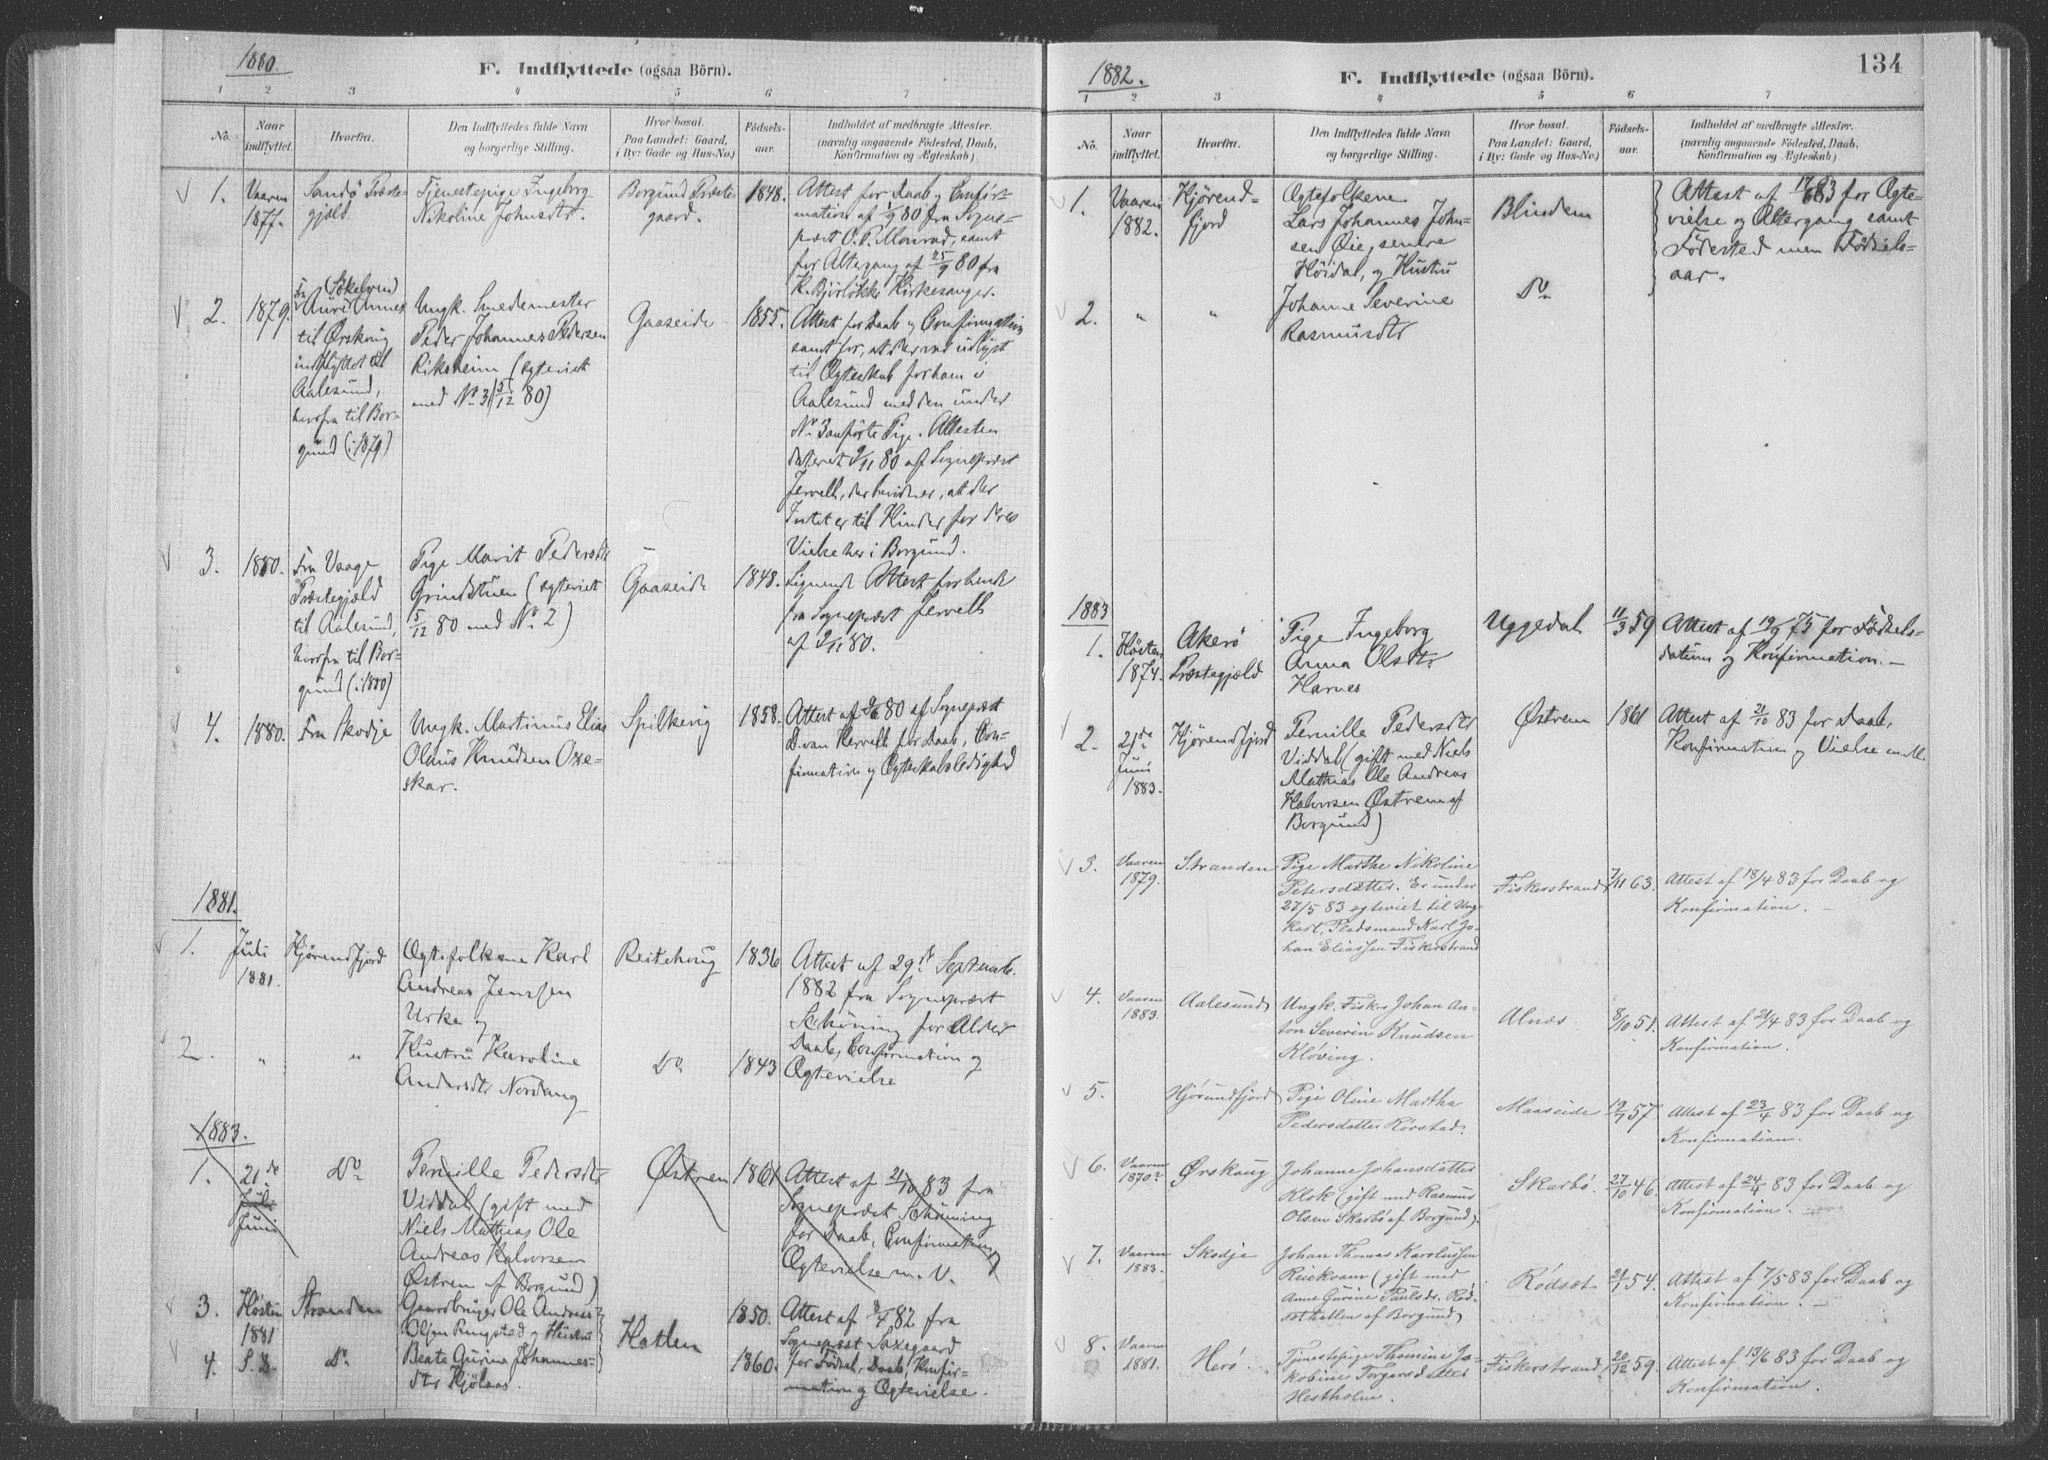 1880.
F. Indflyttede (ogsaa Börn).
1 2 3 4 5 6 7
No.
Naar indflyttet.
Hvorfra.
Den Indflyttedes fulde Navn
og borgerlige Stilling.
Hvor bosat.
Paa Landet: Gaard,
i By: Gade og Hus-No.)
Födsels-
aar.
Indholdet af medbragte Attester.
(navnlig angaaende Födested, Daab,
Konfirmation og Ægteskab)
1. Vaaren
1877.
Sandö Præste-
gjæld
Tjenestepige Ingeborg
Nikoline Johnsdtr.
Borgund Præste-
gaard.
1848.
Attest for Daab og Confir-
mation af 1/9 80 fra Sogne-
præst O. P. Monrad, samt
for Altergang af 25/9 80 fra
K. Bjirløkke Kirkesanger.
2. 1879.
Fra (Sökelvind)
Aure Annex
til Ørskoug
indflyttet til
Aalesund,
hvorfra til Bor-
gund (i 1879)
Ungk. Smedemester
Peder Johannes Pedersen
Riksheim (egteviet
med No 3 5/12 80)
Gaaseide
1855.
Attest for Daab og Confirmation
samt for, at der var udlyst
til Ægteskab for ham i
Aalesund med den under
No 3 anførte Pige. Attesten
dateret 9/11 80 af Sognepræst
Jervell, der bevidner, at der
Intet er til Hinder for deres
Vielse her i Borgund.
3. 1880.
Fra Vaage
Præstegjæld
til Aalesund,
hvorfra til Bor-
gund (i 1880)
Pige Marit Pedersdtr
Grindstuen (egteviet
5/12 80 med No 2)
Gaaseide
1848.
Lignende Attest for hende
fra Sognepræst Jervell
af 9/11 80.
4. 1880.
Fra Skodje
Ungk. Martinus Elias
Olaus Knudsen Oxe-
skar.
Spilkevig
1858.
Attest af 80 af Sognepræst
D. van Kervell for Daab, Con-
firmation og Ægteskabsledighed
1881.
1. Juli
1881.
Hjørendfjord
Ægtefolkene Karl
Andreas Jenssen
Urke og
Reitehoug
1836
Attest af 29de Septemb.
1882 fra Sognepræst
Schöning for Alder
Daab, Confirmation og
Ægtevielse
2. " "
Hustru Karoline
Andersdtr Nordang
Do
1843
1883.
1. 21de
Juli
Juni
Do
Pernille Pedersdtr
Viddal (gift med
Niels Mathias Ole
Andreas Halvorsen
Østrem af Borgund)
Østrem
1861
Attest af 21/10 83 fra
Sognepræst Schöning
for Daab, Confirmation,
Ægtevielse m. V.
3. Høsten
1881
Stranden
Gaardbruger Ole Andreas
Olsen Ringstad og Hustru
Hatlen
1850.
Attest af 8/4 82 fra
Sognepræst Saxegaard
for Fødsel, Daab, Konfir-
mation og Ægtevielse.
4. S. D.
Do
Beate Gurine Johannes-
dtr Kjølaas.
1860.
134
1882.
F. Indflyttede (ogsaa Börn).
1 2 3 4 5 6 7
No.
Naar
indflyttet.
Hvorfra.
Den Indflyttedes fulde Navn
og borgerlige Stilling.
Hvor bosat.
Paa Landet: Gaard,
i By: Gade og Hus-No.)
Födsels-
aar.
Indholdet af medbragte Attester.
(navnlig angaaende Födested, Daab,
Konfirmation og Ægteskab)
1. Vaaren
1882.
Hjörend-
fjord
Ægtefolkene
Lars Johannes John-
sen Øie, senere
Höidal, og Hustru
Blindem
Attest af 83 for Ægte-
vielse og Altergang samt
Födested men Födsels-
aar.
2. " "
Johanne Severine
Rasmusdtr
Do
1883
1. Høsten
1874.
Akerö
Præstegjæld
Pige Ingeborg
Anna Olsdtr
Harnes
Uggedal
11/3 59
Attest af 19/9 75 for Födsels-
datum og Konfirmation. —
2. 21de
Juni
1883.
Hjörendfjord
Pernille Pedersdtr
Viddal (gift med Niels
Mathias Ole Andreas
Halvorsen Østrem af
Borgund)
Østrem
1861
Attest af 21/10 83 for Daab,
Konfirmation og Vielse m. M.
3. Vaaren
1879.
Stranden
Pige Marthe Nikoline
Petersdatter. Er under
27/5 83 egteviet til Ung-
karl, Pladsmand Karl Jo-
han Eliassen Fiskerstrand
Fiskerstrand
7/11 63.
Attest af 18/4 83 for Daab og
Konfirmation. —
4. Vaaren
1883.
Aalesund
Ungk. Fisker Johan An-
ton Severin Knudsen
Kløving.
Alnæs.
8/10 51.
Attest af 21/4 83 for Daab og
Konfirmation.
5.
Hjörundfjord
Pige Oline Martha
Pedersdatter Rørstad.
Maaseide
19/1 57
Attest af 23/4 83 for Daab og
Konfirmation.
6. Vaaren
1870?
Ørskoug
Johanne Johansdatter
Klok (gift med Rasmus
Olsen Skarbø af Borgund).
Skarbø.
27/10 46.
Attest af 24/4 83 for Daab og
Konfirmation.
7. Vaaren
1883.
Skodje
Johan Thomas Karolussen
Reiekvam (gift med
Anne Gurine Paulsdr. Röd-
sethatlen af Borgund)
Rödsæt
21/1 54.
Attest af 7/5 83 for Daab og
Konfirmation. —
8. Vaaren
1881.
Herö.
Tjenestepige Thomine Ja-
kobine Torgersdatter
Hestholm.
Fiskerstrand
20/12 59.
Attest af 13/6 83 for Daab og
Konfirmation.